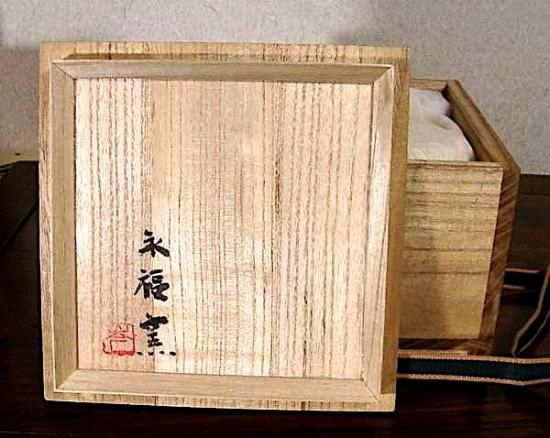 永福窯